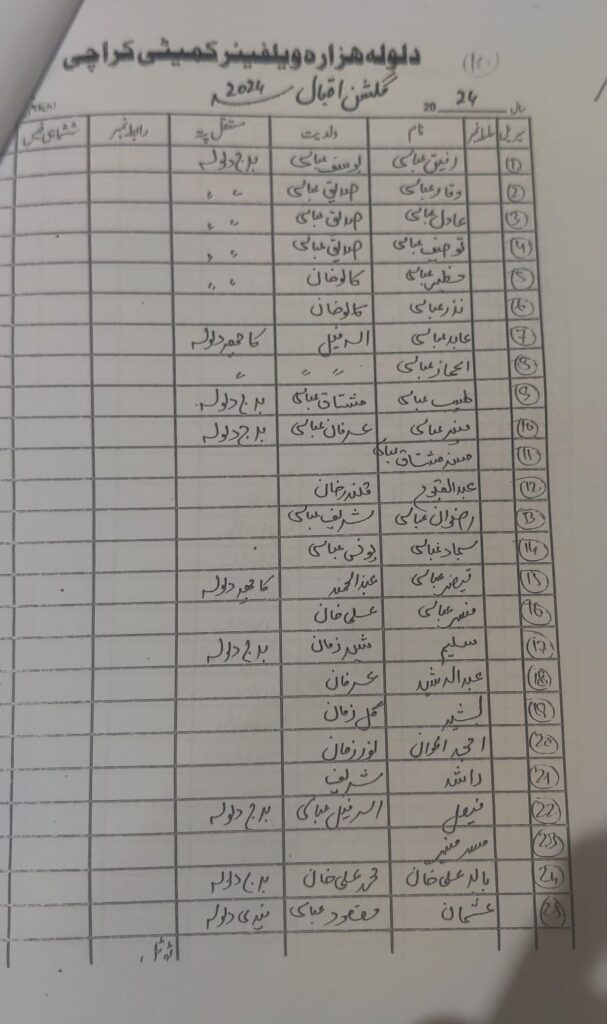 (10)
دلولہ ہزارہ ویلفیئر کمیٹی کراچی
گلشن اقبال 2024
سال 24 20
سیریل سلسلہ نمبر نام ولدیت مستقل پتہ رابطہ نمبر ششماہی فیس
1 رفیق عباسی یوسف عباسی برج دلولہ
2 وقار عباسی صدیق عباسی 〃 〃
3 عادل عباسی صدیق عباسی 〃 〃
4 توصیف عباسی صدیق عباسی 〃 〃
5 عباسی کالوخان 〃 〃
6 نذر عباسی کالوخان
7 عابد عباسی دلولہ
8 عباسی 〃 〃 〃
9 طیب عباسی مشتاق عباسی برج دلولہ
10 منیر عباسی عرفان عباسی برج دلولہ
11 مشتاق عباسی
12 قلندرخان
13 رضوان عباسی شریف عباسی
14 سجاد عباسی یونس عباسی
15 قیصر عباسی دلولہ
16 عباسی علی خان
17 سلیم شیر زمان برج دلولہ
18 عبدالرشید عرفان
19 بشیر گل زمان
20 نور زمان
21 راشد شریف
22 فیصل عباسی برج دلولہ
23
24 علی خان محمد علی خان برج دلولہ
25 عثمان مقصود عباسی دلولہ
ٹوٹل